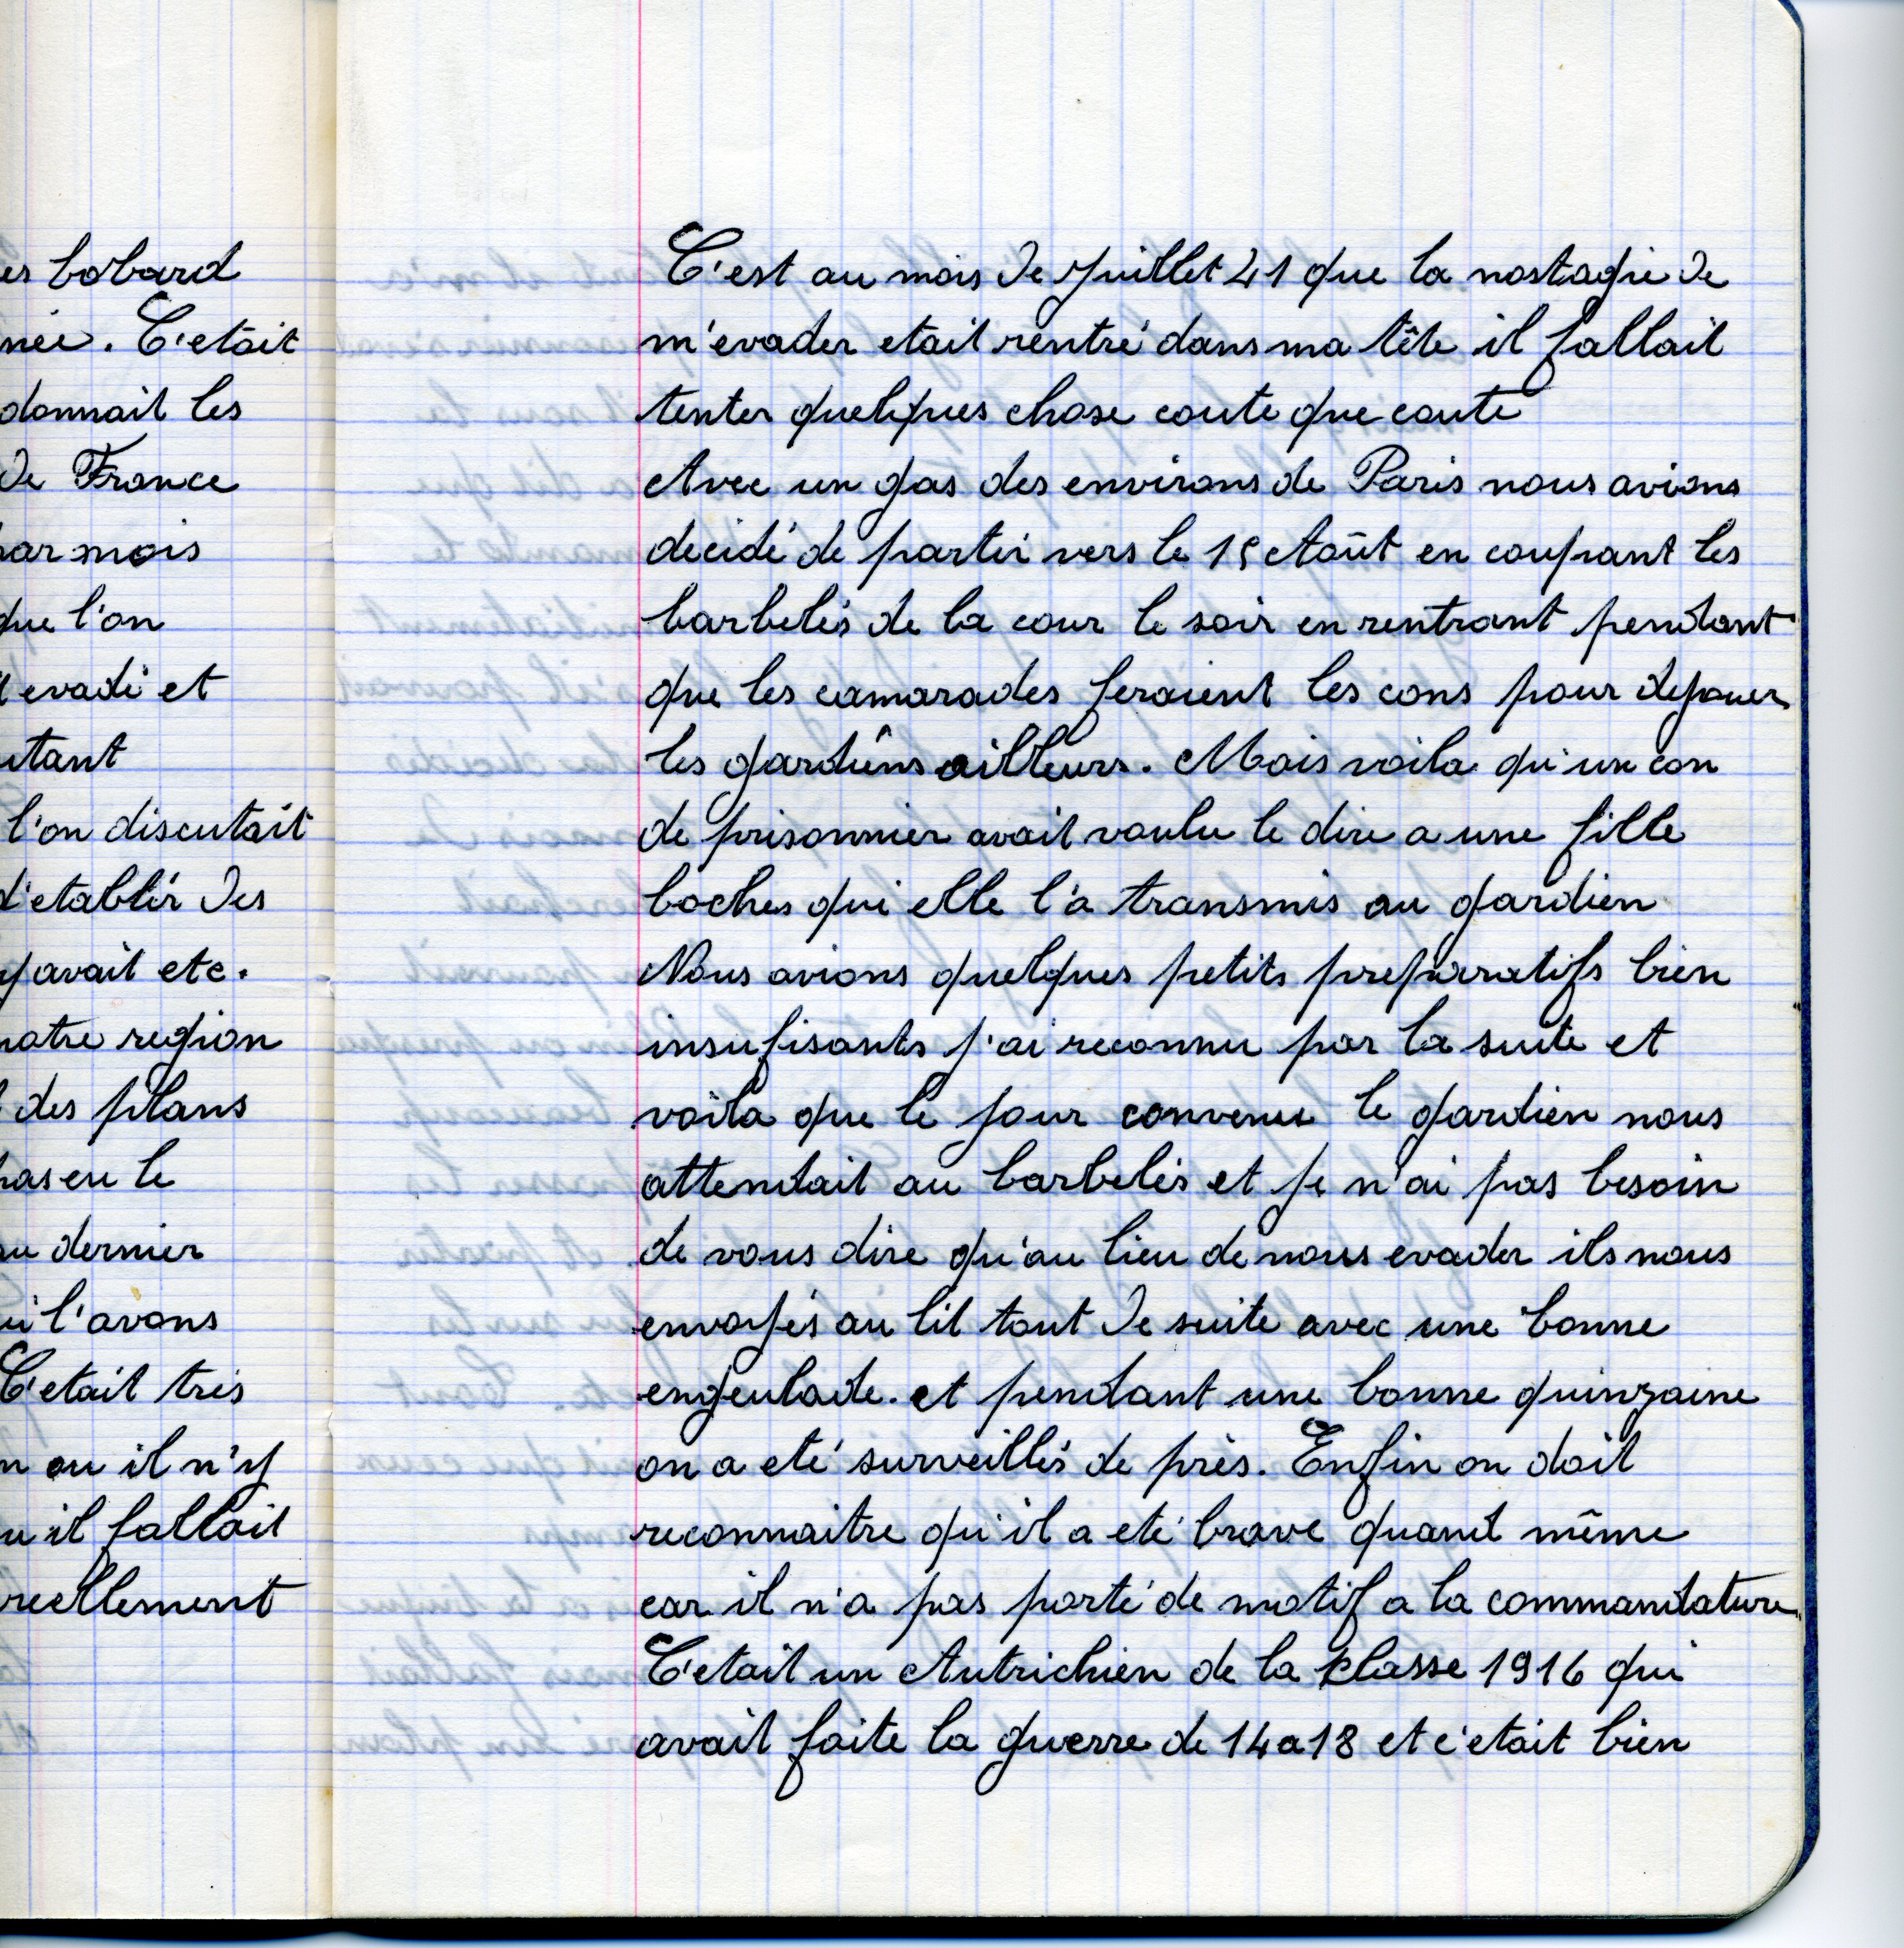 es bobard
née. C'etait
donnait les
de France
par mois
que l'on
evadé et
utant
l'on discutait
d'etablir des
y avait etc.
notre region
des plans
pas eu le
au dernier
l'avons
C'etait très
ou il n'y
il fallait
reellement
C'est au mois de Juillet 41 que la nostagie de
m'evader etait rentré dans ma tête il fallait
tenter quelques chose coute que coute
Avec un gas des environs de Paris nous avions
decidé de partir vers le 15 Août en coupant les
barbelés de la cour le soir en rentrant pendant
que les camarades feraient les cons pour dejouer
les gardiens ailleurs. Mais voila qu'un con
de prisonnier avait voulu le dire a une fille
boches qui elle l'a transmis au gardien
Nous avions quelques petits preparatifs bien
insufisants j'ai reconnu par la suite et
voila que le jour convenu le gardien nous
attendait au barbelés et je n'ai pas besoin
de vous dire qu'au lieu de nous evader ils nous
envoyés au lit tout de suite avec une bonne
engeulade. et pendant une bonne quinzaine
on a eté surveillés de près. Enfin on doit
reconnaitre qu'il a eté brave quand même
car il n'a pas porté de motif a la commandature
C'etait un Autrichien de la classe 1916 qui
avait faite la guerre de 14 a 18 et c'etait bien